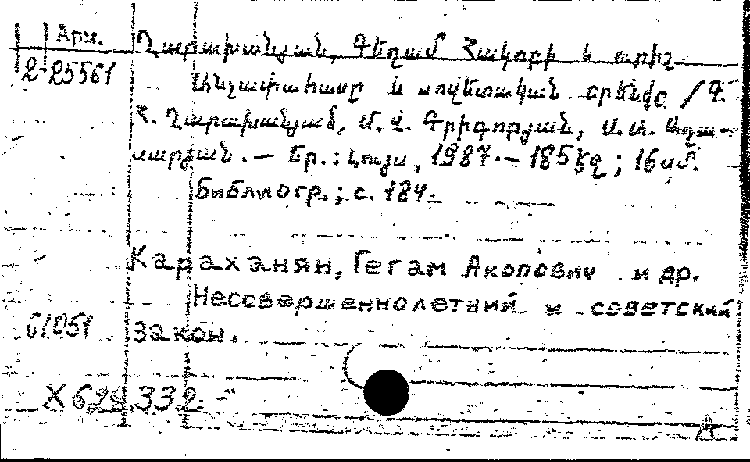 Арм.
Ղարախանյան, Գեղամ Հակոբի և ուրիշ
2-25561
Անչափահասը և սովետական օրենքը / Գ.
Հ. Ղարախանյան, Մ. Վ. Գրիգորյան, Ս. Ս.
— Եր.: Լույս, 1987. — 185 էջ; 16 սմ.
Библиогр.; с. 184.
Караханян, Гегам Акопович и др.
Несовершеннолетний и советский
61051 закон.
X628.332